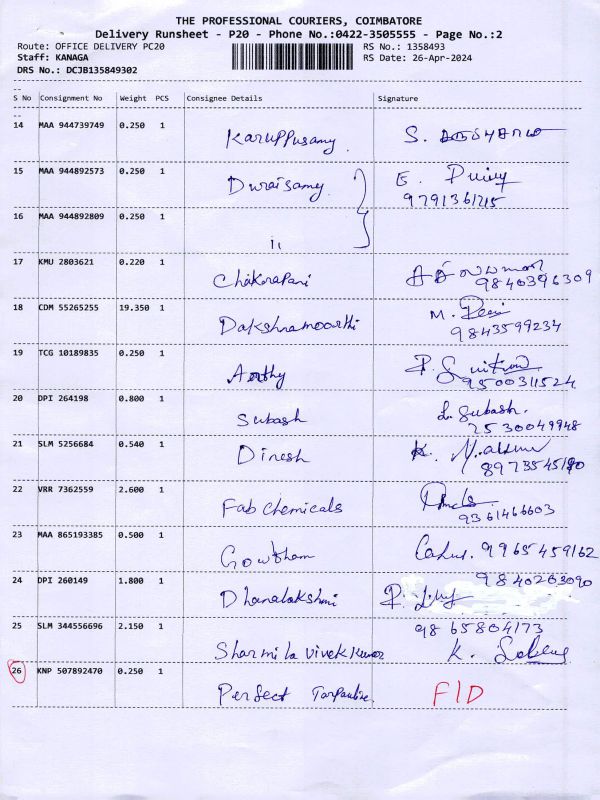 THE PROFESSIONAL COURIERS, COIMBATORE
Delivery Runsheet - P20 - Phone No.:0422-3505555 - Page No.:2
Route: OFFICE DELIVERY PC20 RS No.: 1358493
Staff: KANAGA RS Date: 26-Apr-2024
DRS No.: DCJB135849302
S No Consignment No Weight PCS Consignee Details Signature
14 MAA 944739749 0.250 1 Karuppusamy S.
15 MAA 944892573 0.250 1 Duraisamy E.
9791361215
16 MAA 944892809 0.250 1 ii
17 KMU 2803621 0.220 1 Chakrapani
9840396309
18 CDM 55265255 19.350 1 Dakshnamoorthi M.
9843599234
19 TCG 10189835 0.250 1 Aarthy P.
9500311524
20 DPI 264198 0.800 1 Subash L. Subash.
2530049948
21 SLM 5256684 0.540 1 Dinesh K.
22 VRR 7362559 2.600 1 Fab Chemicals
9361466603
23 MAA 865193385 0.500 1 Gowtham 9965459162
9840263090
24 DPI 260149 1.800 1 Dhanalakshmi P.
25 SLM 344556696 2.150 1 Sharmila Vivek Kumar 9865804173
K.
26 KNP 507892470 0.250 1 Perfect Tarpauline. F/D